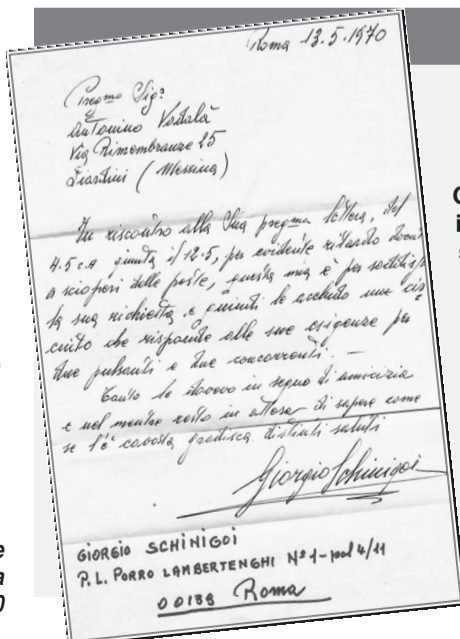 Roma 13.5.1970
Pregmo Sigr
Antonino
Via Rimembranze 25
Giardini (Messina)
In riscontro alla Sua pregma lettera, del
4.5 c.a giunta il 12.5, per evidente ritardo
a scioperi delle poste, questa mia è per
la sua richiesta e quindi le accludo uno
cuito che risponde alle sue esigenze per
due pulsanti e due concorrenti. —
Tanto le dovevo in segno di amicizia
e nel mentre resto in attesa di sapere come
se l'è cavata gradisca distinti saluti
Giorgio Schinigoi
GIORGIO SCHINIGOI
P.L. PORRO LAMBERTENGHI Nº 1 - pal 4/11
Roma
C
i
s
e
a
0